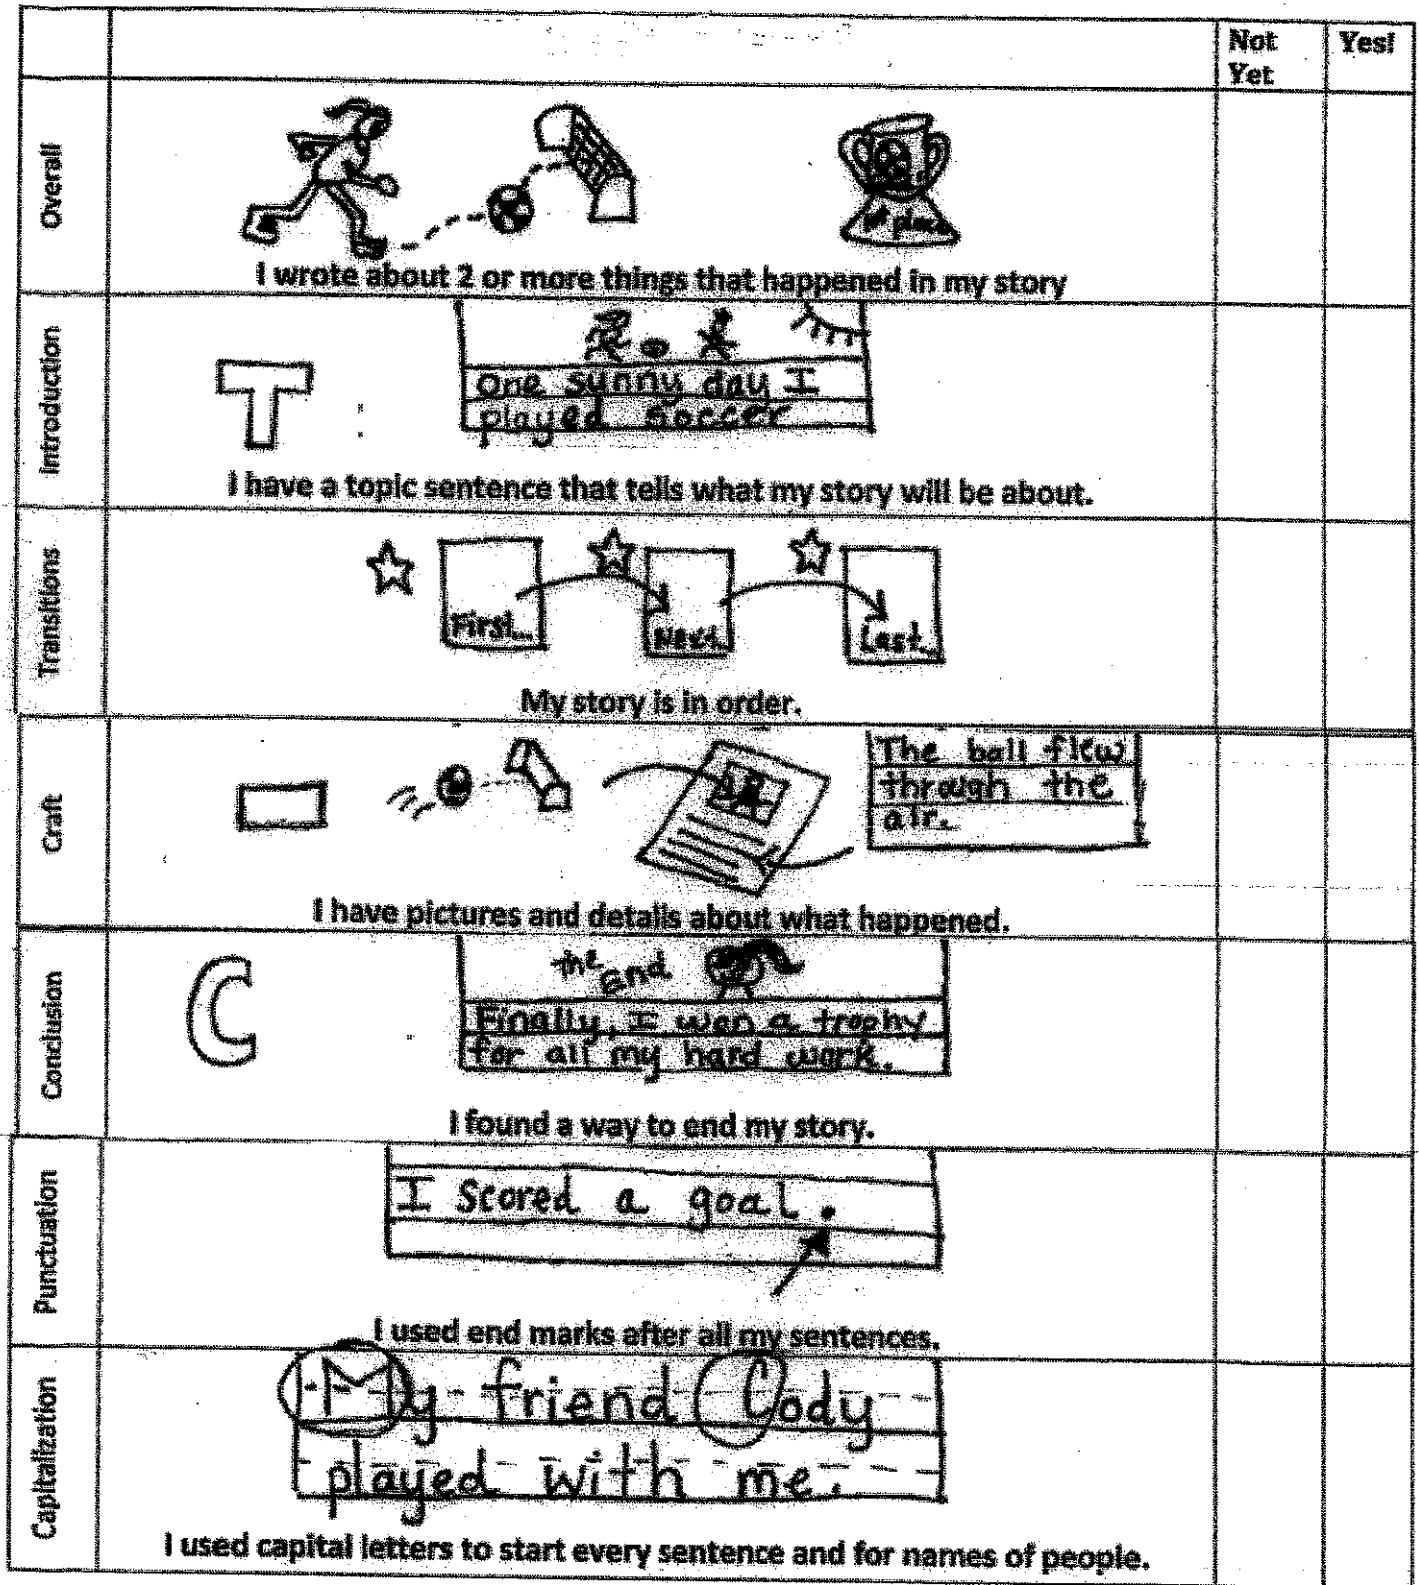 Not Yes!
Yet
Overall
1st place
I wrote about 2 or more things that happened in my story
Introduction
T
One sunny day I
played soccer
I have a topic sentence that tells what my story will be about.
Transitions
First...
Next...
Last...
My story is in order.
Craft
The ball flew
through the
air.
I have pictures and details about what happened.
Conclusion
C
the End
Finally, I won a trophy
for all my hard work.
I found a way to end my story.
Punctuation
I scored a goal.
I used end marks after all my sentences.
Capitalization
My friend Cody
played with me.
I used capital letters to start every sentence and for names of people.